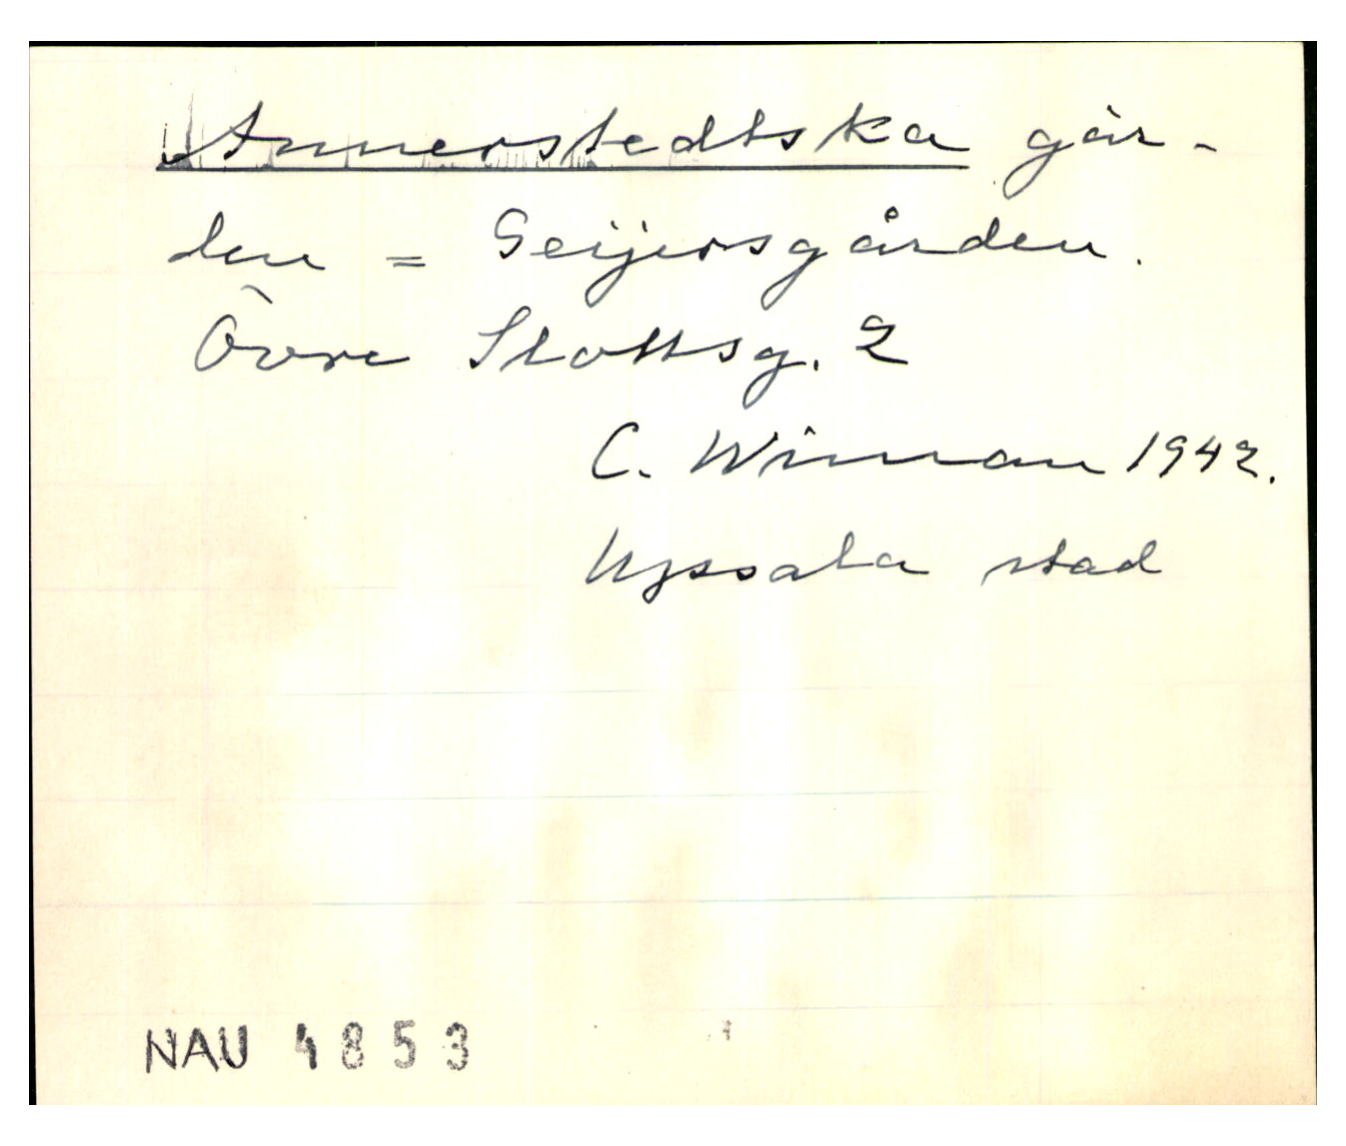 Annerstedtska går-
den = Geijersgården.
Övre Slottsg. 2
C. Wiman 1942.
Uppsala stad
NAU 4853